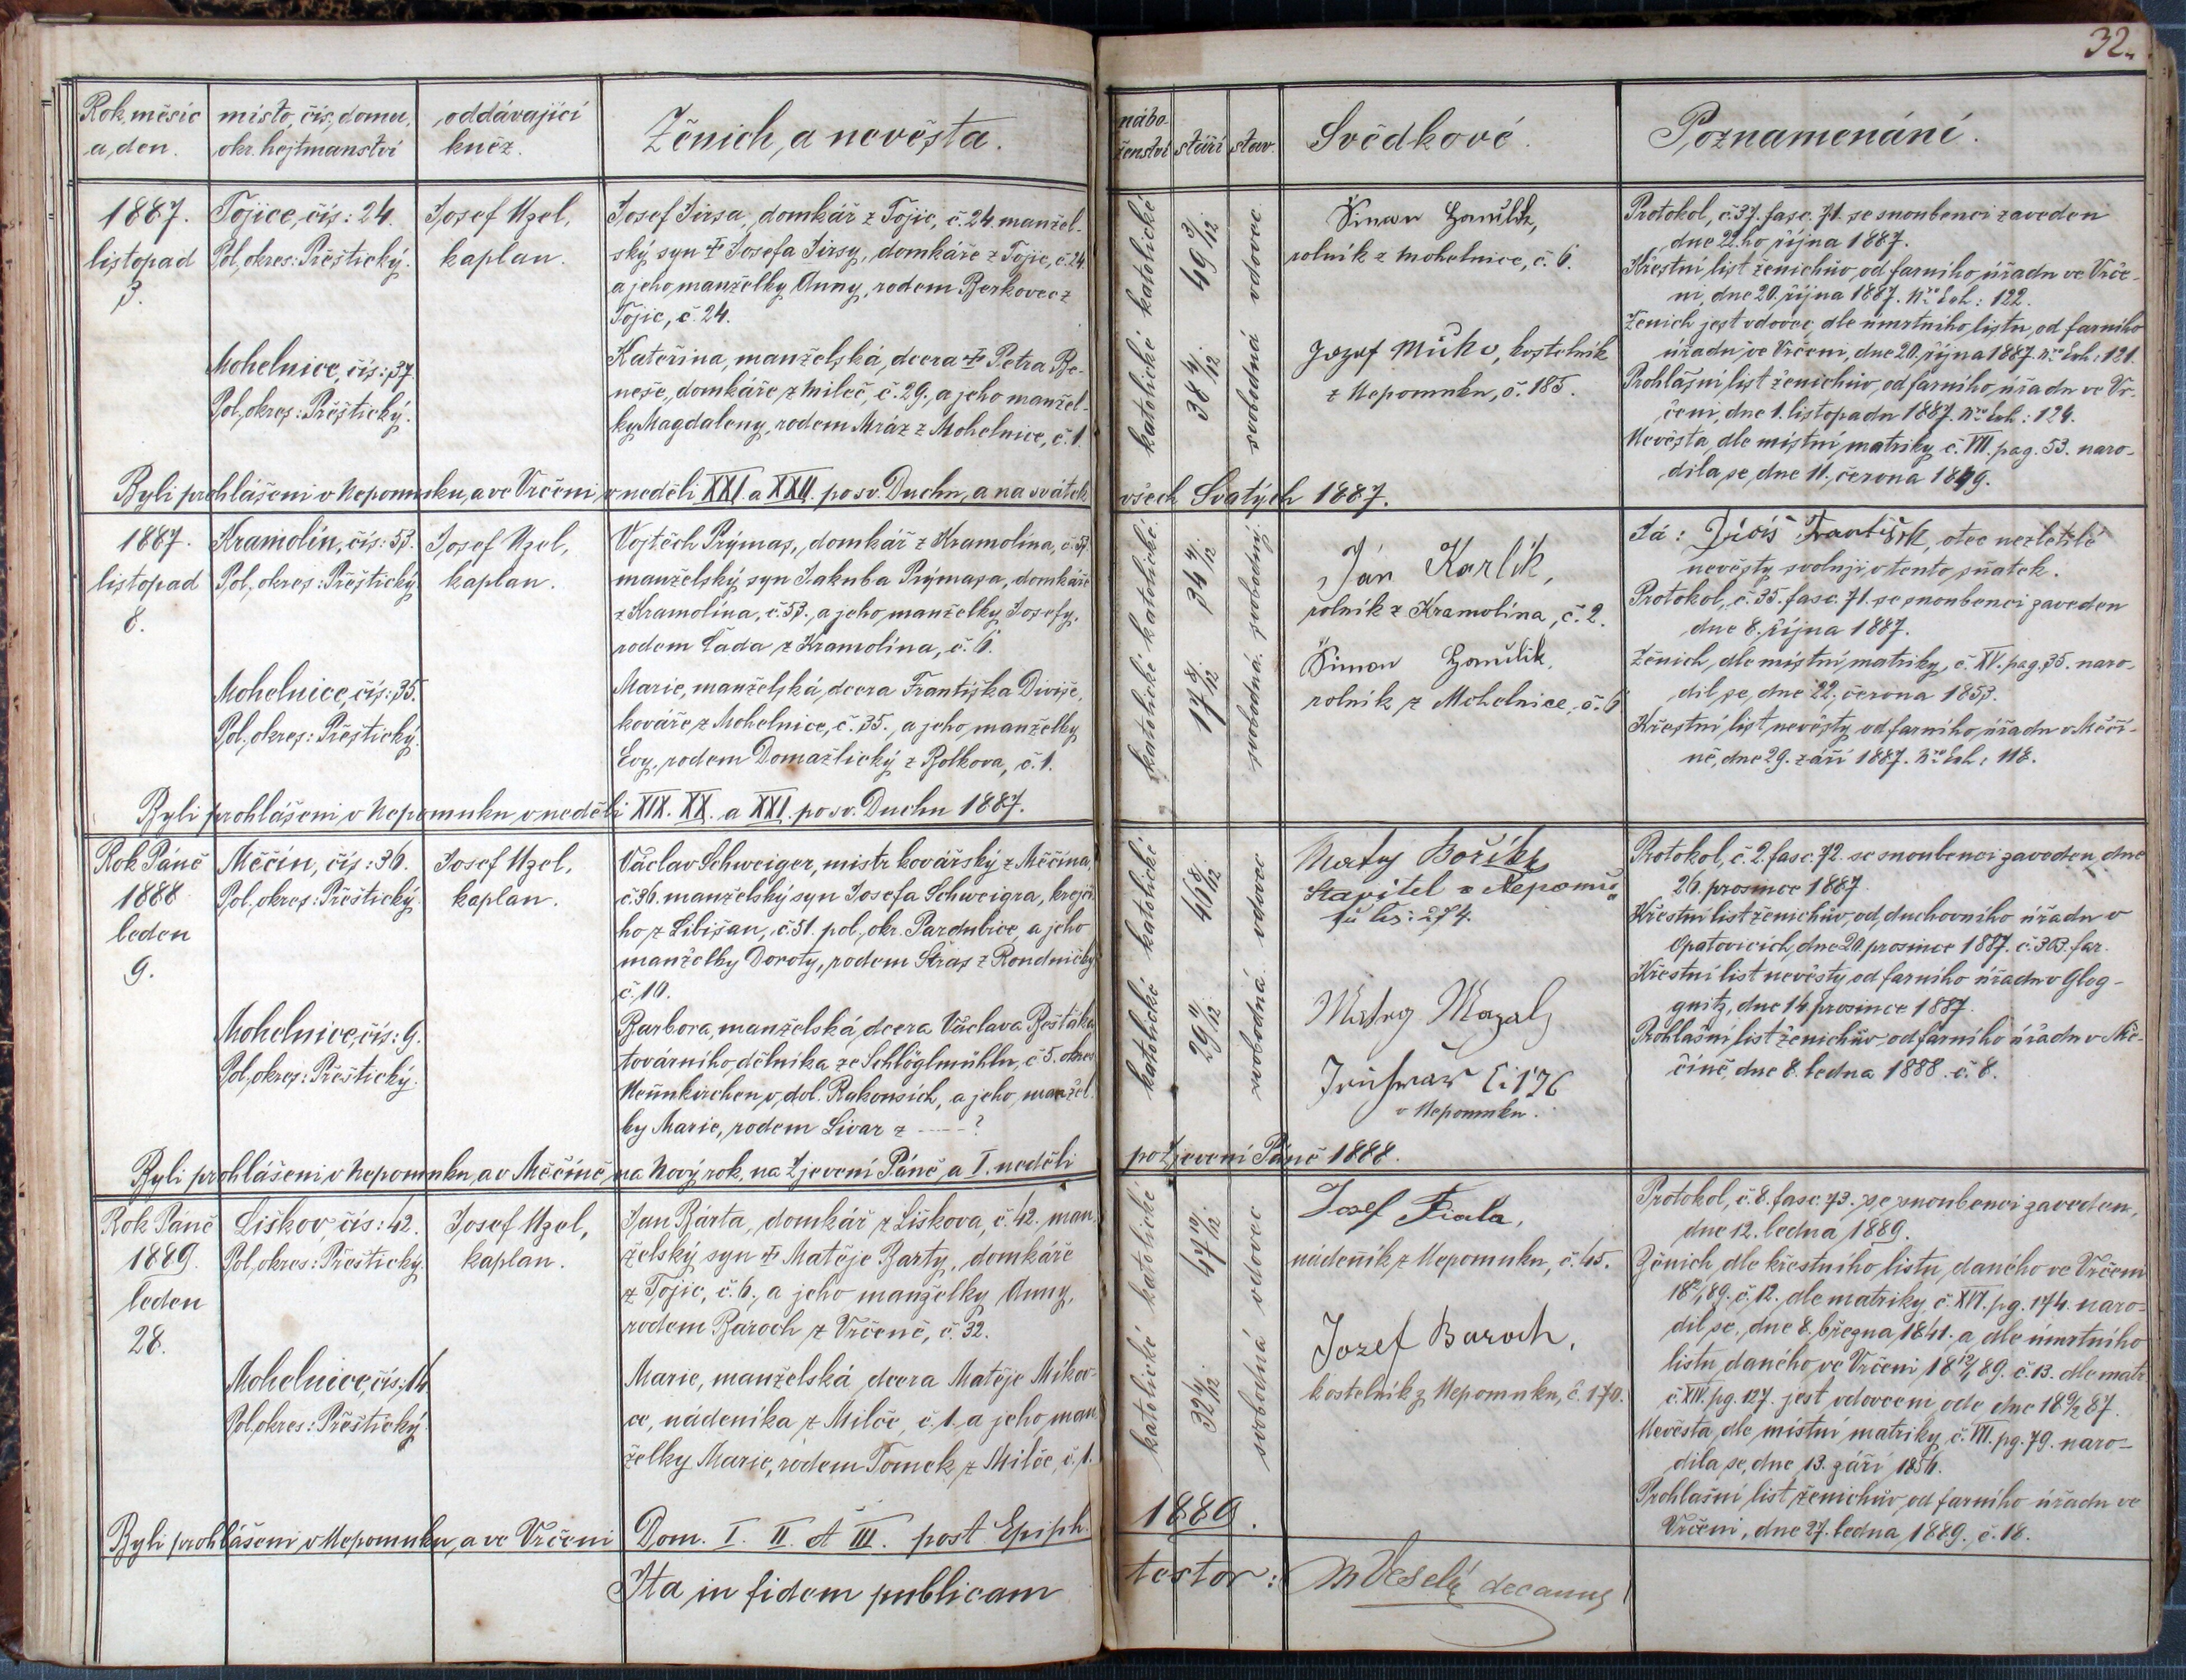 32.
Rok, měsíc a, den.
místo, čís, domu, okr. hejtmanství
oddávající kněz.
Ženich, a nevěsta.
nábo-
ženství
stáří
stav.
Svědkové.
Poznamenání.
1887.
listopad
3.
Tojice, čís: 24.
Pol, okres: Přeštický.
Mohelnice, čís: 37.
Pol, okres: Přeštický.
Josef Uzel,
kaplan.
Josef Jirsa, domkář z Tojic, č. 24. manžel-
ský syn † Josefa Jirsy, domkáře z Tojic, č. 24.
a jeho, manželky Anny, rodem Berkovec z
Tojic, č. 24.
Kateřina, manželská, dcera † Petra Be-
neše, domkáře, z Mileč, č. 29., a jeho manžel-
ky Magdaleny, rodem Mráz z Mohelnice, č. 1.
katolické katolické
49 3/12.
38 4/12.
vdovec
svobodná
Šimon
rolník z Mohelnice, č. 6.
Jozef kostelník
z Nepomuku, č. 185.
Protokol, č. 37. fasc. 71. se snoubenci zaveden
dne 22.ho října 1887.
Křestní list ženichův, od farního úřadu ve Vrče-
ni, dne 20. října 1887. Nro Exh: 122.
Ženich jest vdovec, dle úmrtního listu, od farního
úřadu ve Vrčeni, dne 20. října 1887. Nro Exh: 121.
Prohlašní list ženichův, od farního úřadu ve Vr-
čeni, dne 1. listopadu 1887. Nro Exh: 124.
Nevěsta, dle místní matriky č. VII. pag. 53. naro-
dila se, dne 11. června 1849.
Byli prohlášeni v Nepomuku, a ve Vrčeni, v neděli XXI. a XXII. po sv. Duchu, a na svátek všech Svatých 1887.
1887.
listopad
8.
Kramolín, čís: 53.
Pol, okres: Přeštický
Mohelnice, čís: 35.
Pol, okres: Přeštický.
Josef Uzel,
kaplan.
Vojtěch Prýmas, domkář z Kramolína, č. 53.
manželský syn Jakuba Prýmasa, domkáře
z Kramolína, č. 53., a jeho, manželky Josefy,
rodem Lada z Kramolína, č. 6.
Marie, manželská, dcera Františka Diviše,
kováře z Mohelnice, č. 35., a jeho, manželky
Evy, rodem Domažlický z Bolkova, č. 1.
katolické katolické
34 4/12.
17 8/12.
svobodný.
svobodná.
Ján Karlík,
rolník z Kramolína, č. 2.
Šimon
rolník z Mohelnice, č. 6
Já: Diviš František, otec nezletilé
nevěsty svoluji v tento sňatek.
Protokol, č. 35. fasc. 71. se snoubenci zaveden
dne 8. října 1887.
Ženich, dle místní matriky, č. XV. pag. 35. naro-
dil se, dne 22. června 1853.
Křestní list nevěsty, od farního úřadu v Měčí-
ně, dne 29. září 1887. Nro Exh: 118.
Byli prohlášeni v Nepomuku v neděli XIX. XX. a XXI. po sv. Duchu 1887.
Rok Páně
1888
leden
9.
Měčín, čís: 36.
Pol, okres: Přeštický.
Mohelnice, čís: 9.
Pol, okres: Přeštický.
Josef Uzel,
kaplan.
Václav Schweiger, mistr kovářský z Měčína,
č. 36. manželský syn Josefa Schweigra, krejčí-
ho z Libišan, č. 51. pol. okr. Pardubice, a jeho
manželky Doroty, rodem z
č. 10.
Barbora, manželská, dcera Václava
továrního dělníka ze Schlöglmühlu, č. 5. okres
Neunkirchen v dol. Rakousích, a jeho, manžel-
ky Marie, rodem z ----- ?
katolické katolické
46 8/12.
29 11/12.
vdovec
svobodná.
Matěj
Stavitel v Nepomu-
ku čís: 274.
Matěj
č: 176
v Nepomuku.
Protokol, č. 2. fasc. 72. se snoubenci zaveden, dne
26. prosince 1887.
Křestní list ženichův, od duchovního úřadu v
Opatovicích, dne 20. prosince 1887. č. 303. far.
Křestní list nevěsty od farního úřadu v Glog-
gnitz, dne 14. prosince 1887.
Prohlašní list ženichův od farního úřadu v Mě-
číně, dne 8. ledna 1888. č. 8.
Byli prohlášeni v Nepomuku, a v Měčíně, na Nový rok, na Zjevení Páně, a I. neděli po Zjevení Páně 1888.
Rok Páně
1889.
leden
28.
Liškov, čís: 42.
Pol, okres: Přeštický.
Mohelnice, čís: 14
Pol, okres: Přeštický.
Josef Uzel,
kaplan.
Jan Bárta, domkář z Liškova, č. 42. man-
želský syn † Matěje Barty, domkáře
z Tojic, č. 6., a jeho manželky Anny,
rodem Baroch z Vrčeně, č. 32.
Marie, manželská dcera Matěje Mikov-
ce, nádeníka z Milče, č. 1. a jeho man-
želky Marie, rodem Tomek z Milče, č. 1.
katolické katolické
47 10/12.
32 4/12.
vdovec
svobodná
Josef Fiala,
nádeník z Nepomuku, č. 45.
Jozef Baroch,
kostelník z Nepomuku, č. 170.
Protokol, č. 8. fasc. 73. se snoubenci zaveden,
dne 12. ledna 1889.
Ženich dle křestního listu, daného ve Vrčeni
č. 12. dle matriky č. XVI. pg. 174. naro-
dil se, dne 8. března 1841. a dle úmrtního
listu, daného ve Vrčeni č. 13. dle matr.
č. XIV. pg. 127. jest vdovcem ode dne
Nevěsta, dle místní matriky, č. VII. pg. 79. naro-
dila se, dne 13. září 1856.
Prohlašní list ženichův, od farního úřadu ve
Vrčeni, dne 27. ledna 1889. č. 18.
Byli prohlášeni v Nepomuku, a ve Vrčeni Dom. I. II. et III. post Epiph. 1889.
Ita in fidem publicam testor: Veselý decanus